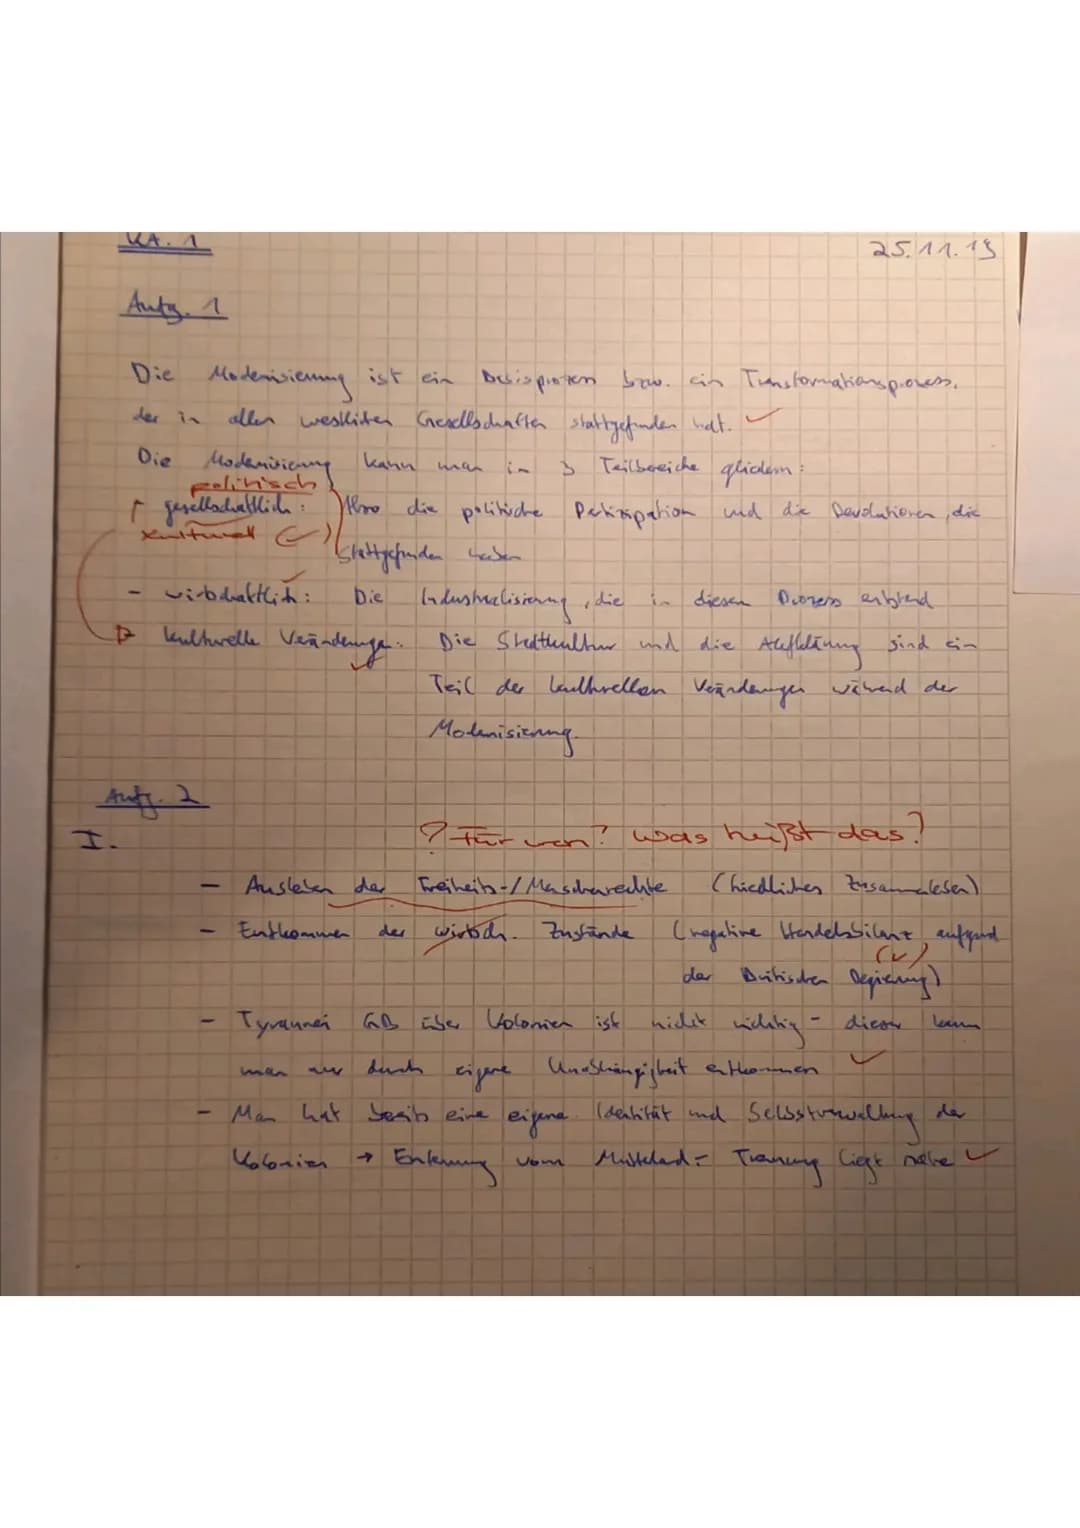 KA. 1 25.11.19
Aufg. 1
Die Modernisierung ist ein Basisprozess bzw. ein Transformationsprozess,
der in allen westlichen Gesellschaften stattgefunden hat.
Die Modernisierung kann man in 3 Teilbereiche gliedern:
politisch
gesellschaftlich: Also die politische Partizipation und die Revolutionen, die
kulturell (✓) stattgefunden haben
- wirtschaftlich: Die Industrialisierung, die in diesem Prozess entstand
kulturelle Veränderungen: Die Stadtkultur und die Aufklärung sind ein
Teil der kulturellen Veränderungen während der
Modernisierung.
Aufg. 2
I. ? Für wen? was heißt das?
- Ausleben der Freiheits-/Menschenrechte (friedliches Zusammenleben)
- Entkommen der wirtsch. Zustände (negative Handelsbilanz aufgrund
(✓)
der Britischen Regierung)
- Tyrannei GB über Kolonien ist nicht richtig - dieser kann
man nur durch eigene Unabhängigkeit entkommen
- Man hat bereits eine eigene Identität und Selbstverwaltung der
Kolonien → Entfernung vom Mutterland = Trennung liegt nahe